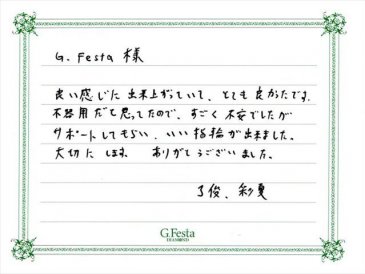 G. Festa 様
良い感じに出来上がっていて、とても良かったです。
不器用だと思ってたので、すごく不安でしたが
サポートしてもらい、いい指輪が出来ました。
大切にします。 ありがとうございました。
了俊、彩夏
G.Festa
DIAMOND